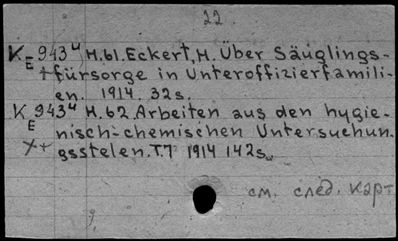 22
K E 943ч H.61. Eckert, H. Über Säuglings-
+fürsorge in Unteroffizierfamili-
en. 1914. 32s.
K E 943ч H.62. Arbeiten aus den hygie-
nisch-chemischen Untersuchun.
X+ gsstelen. T.7 1914 142s.
см. след. карт.